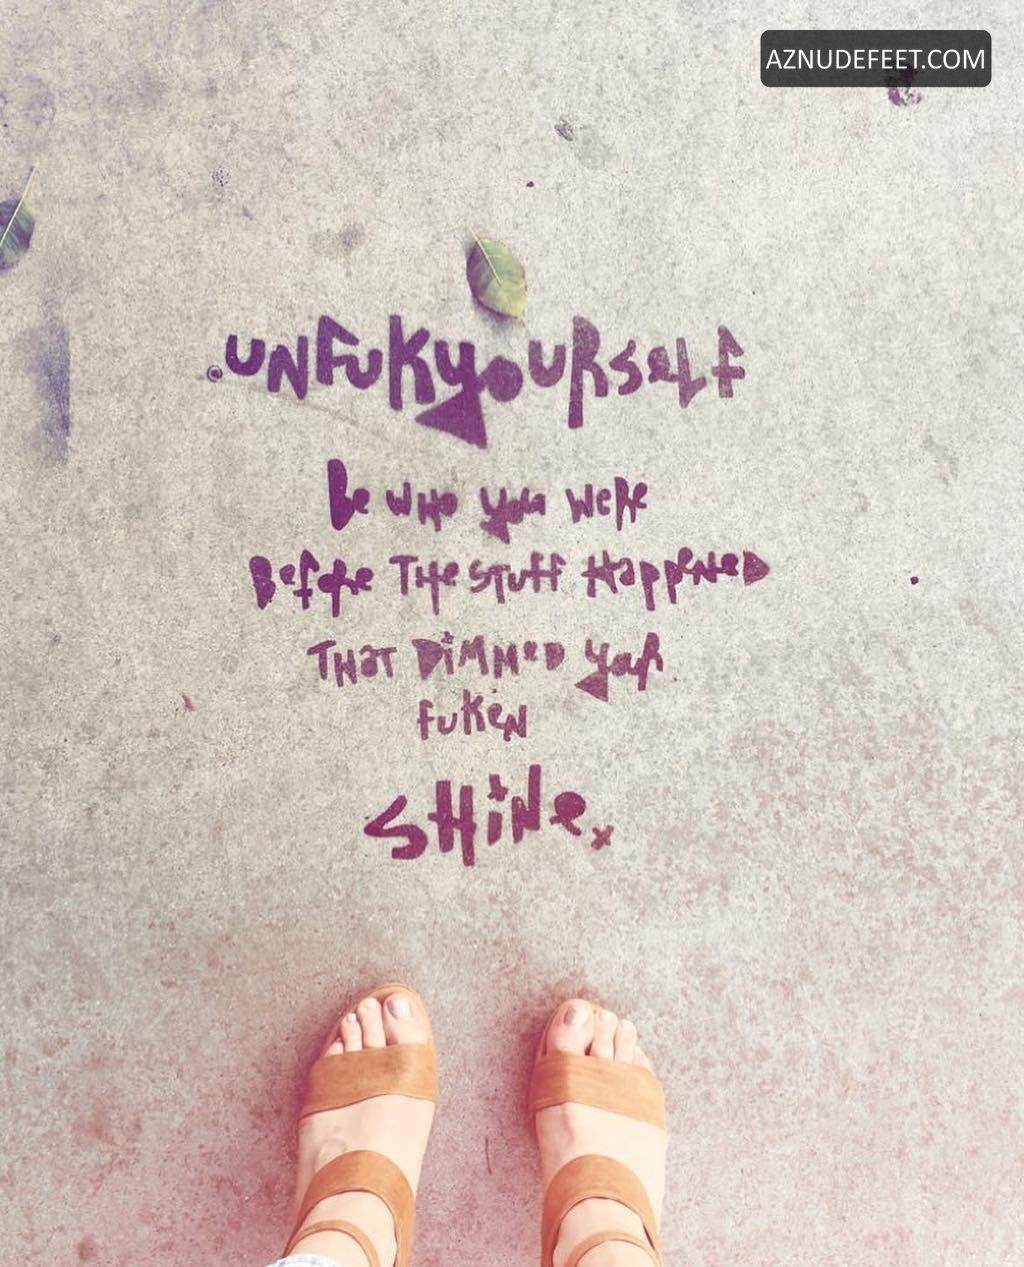 AZNUDEFEET.COM
.UNFUKYOURSELF
Be WHO you WeRe
BefoRe THe STuff HappeNeD
THaT DiMMeD youR
fuKeN
SHiNe.x